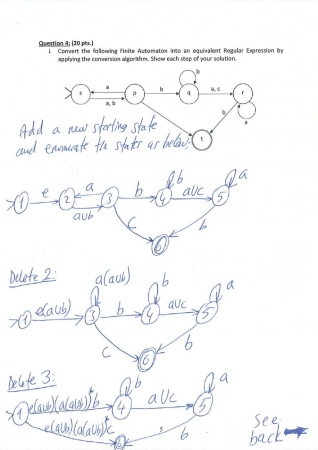 Question 4: (20 pts.)
i. Convert the following Finite Automaton into an equivalent Regular Expression by
applying the conversion algorithm. Show each step of your solution.
b
s a p b q a, c r
a, b
b a
t
Add a new starting state
and enumerate the states as below:
b a
1 e 2 a 3 b 4 a∪c 5
a∪b
c b
6
Delete 2:
a(a∪b) b a
1 e(a∪b) 3 b 4 a∪c 5
c b
6
Delete 3:
b a
1 e(a∪b)(a(a∪b))*b 4 a∪c 5
e(a∪b)(a(a∪b))*c b
6
See
back